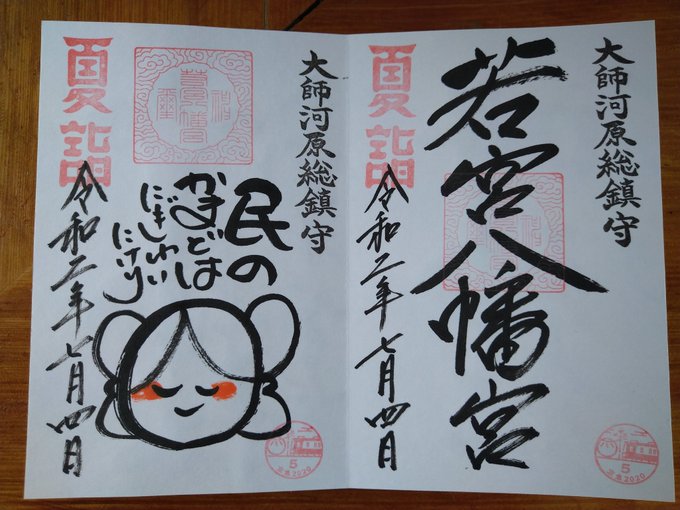 大師河原総鎮守
若宮八幡宮
夏詣
令和二年七月四日
5
2020
大師河原総鎮守
民の
かまどは
にぎわい
にけり
夏詣
令和二年七月四日
5
2020